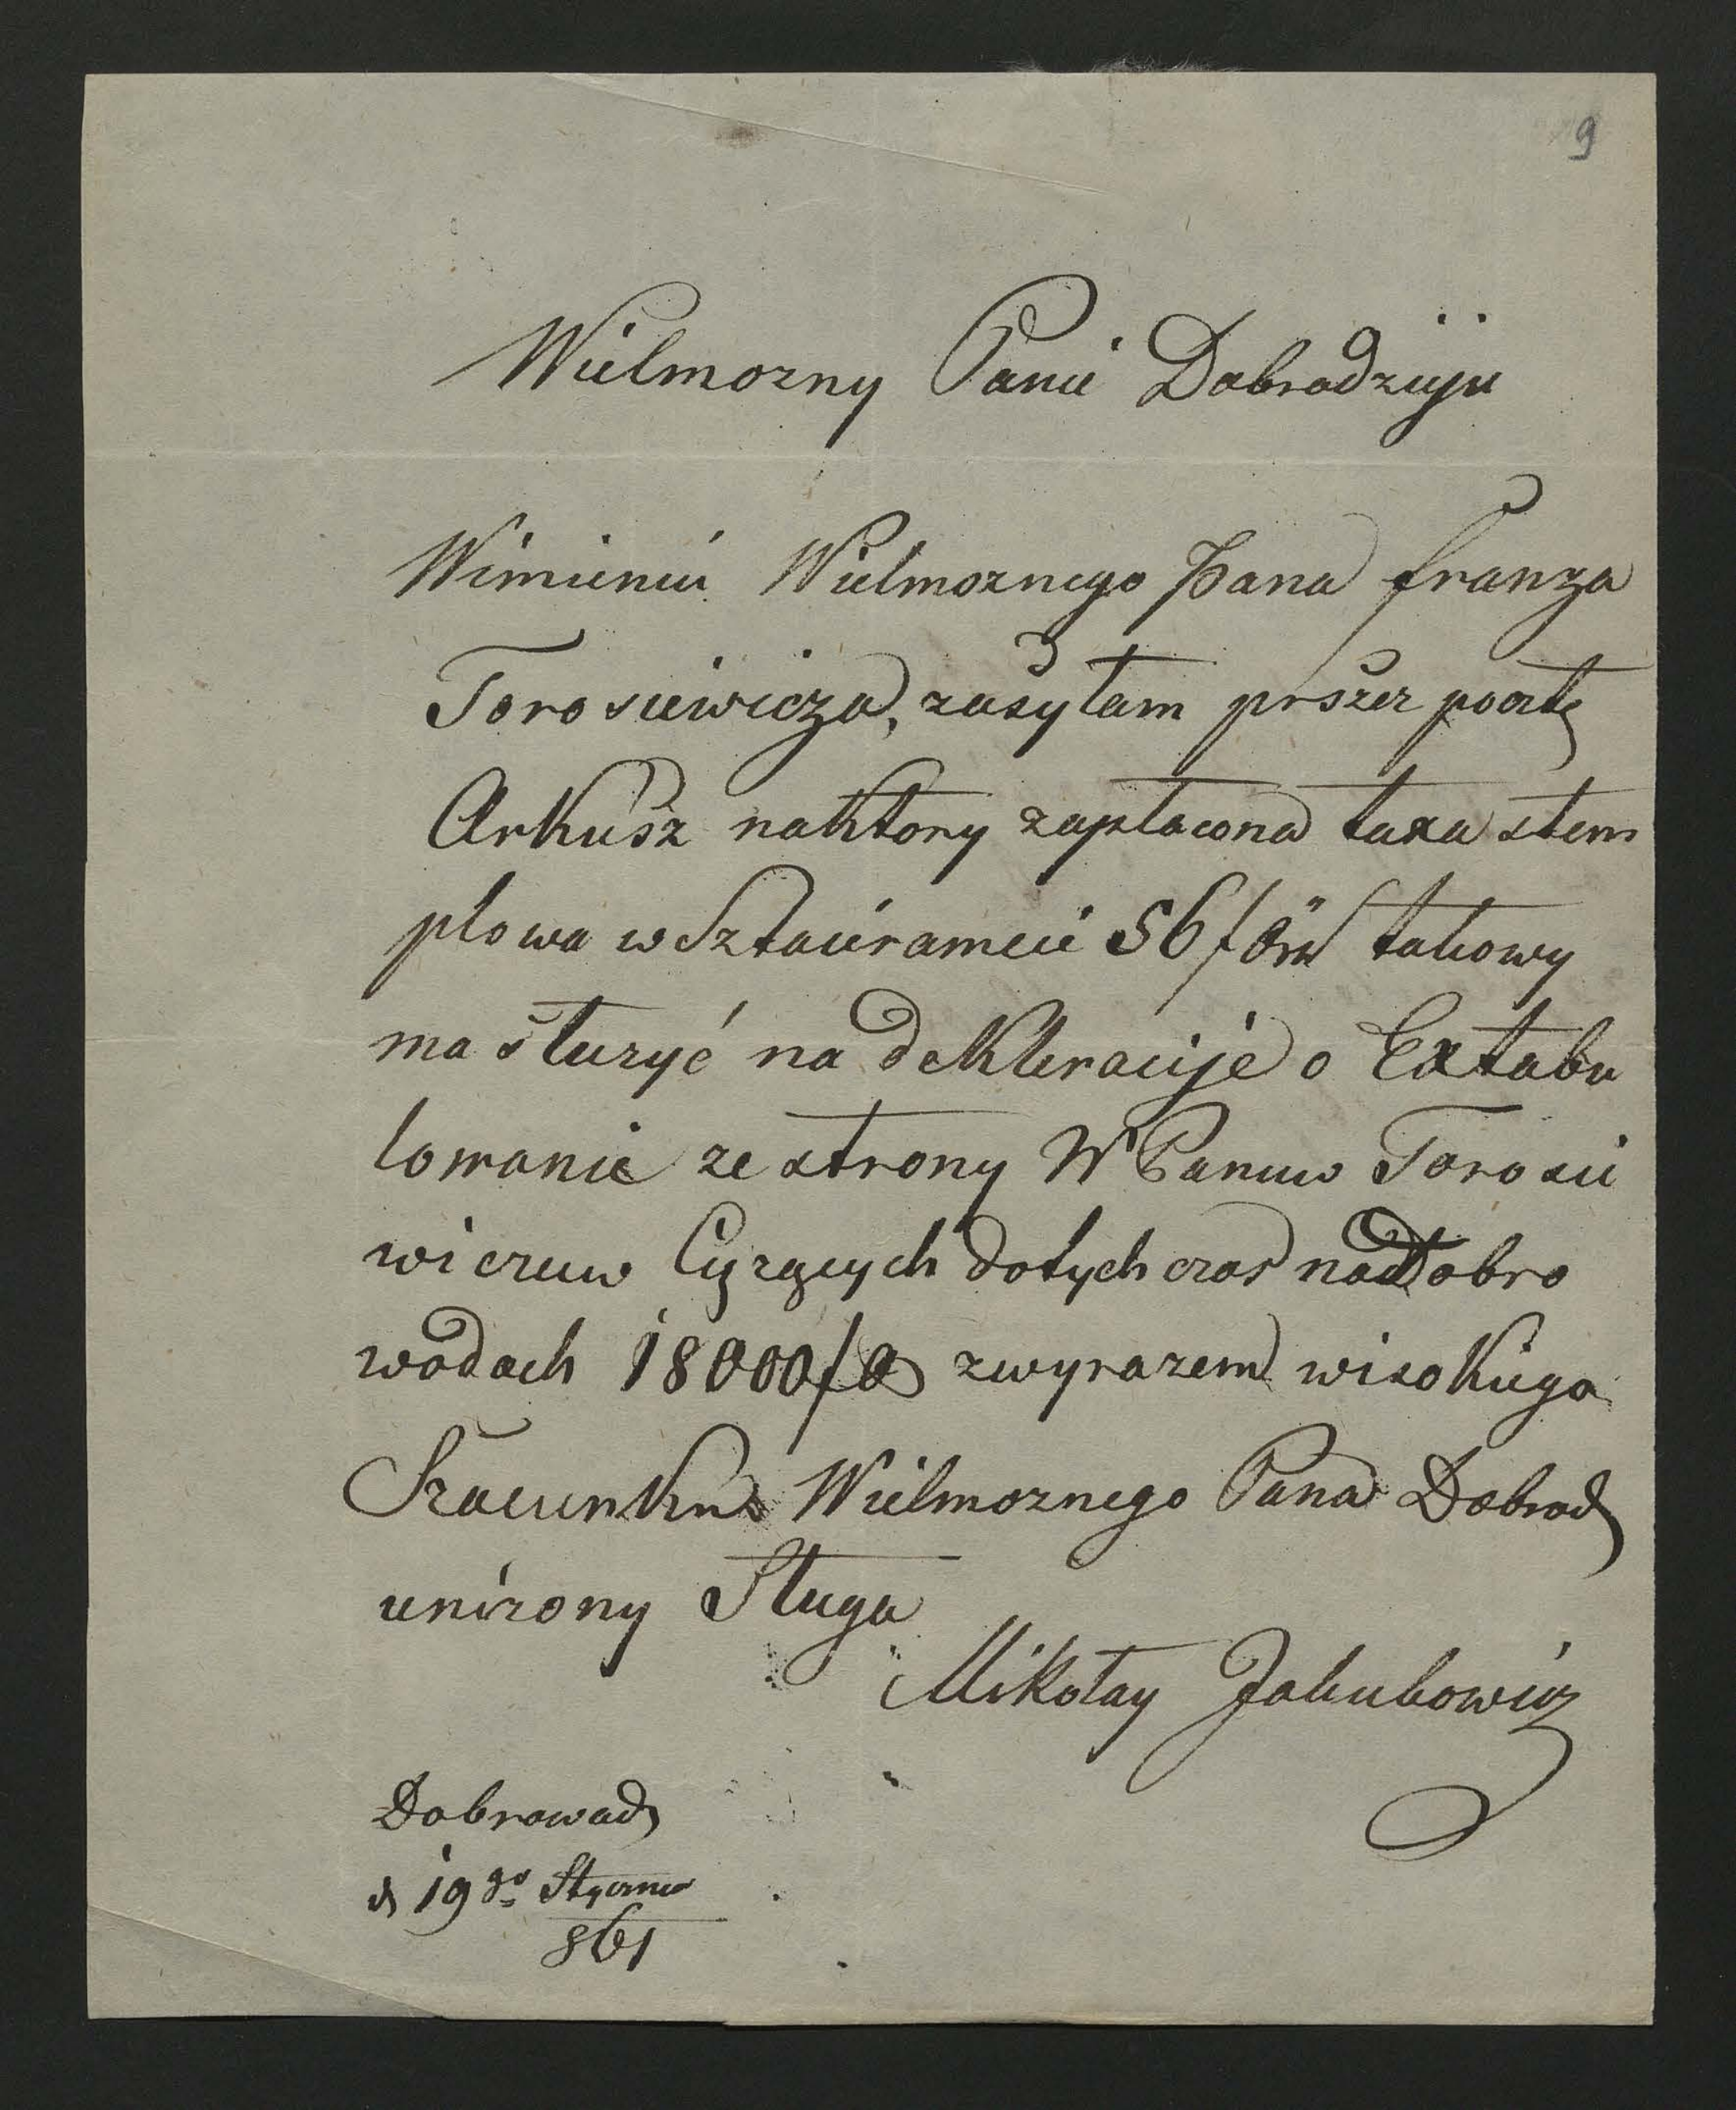 9
Wielmozny Panie Dobrodzieju
Wimieniu Wielmoznego Pana franza
Torosiewicza, zasyłam prszez pocztę
Arkusz naktory zapłacona taxa stem
plowa w Sztacirameie 56 f öw takowy
ma słuzyć na dekleracije o Extabu
lowanie ze strony W Panuw Torosie
wiczuw Ciązących dotychczas na dobro
wodach 18000 f zwyrazem wisokiego
Szacunku Wielmoznego Pana Dobrodz
unizony Sługa
Mikołay Jakubowicz
Dobrowody
d 19go Stycznia
861